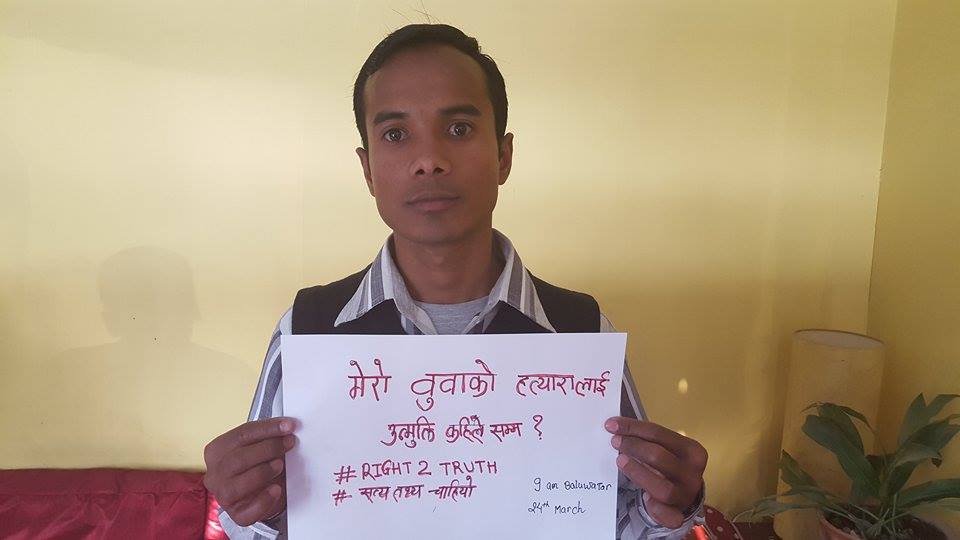 मेरो वुवाको हत्यारालाई
उन्मुक्ति कहिले सम्म ?
# RIGHT 2 TRUTH
# सत्य तथ्य चाहियो
9 am Baluwatar
24th March